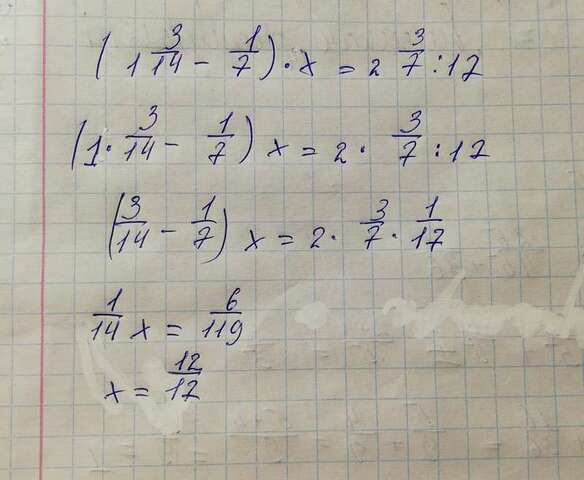 (1 3/14 - 1/7) · x = 2 3/7 : 17
(1 · 3/14 - 1/7) x = 2 · 3/7 : 17
(3/14 - 1/7) x = 2 · 3/7 · 1/17
1/14 x = 6/119
x = 12/17